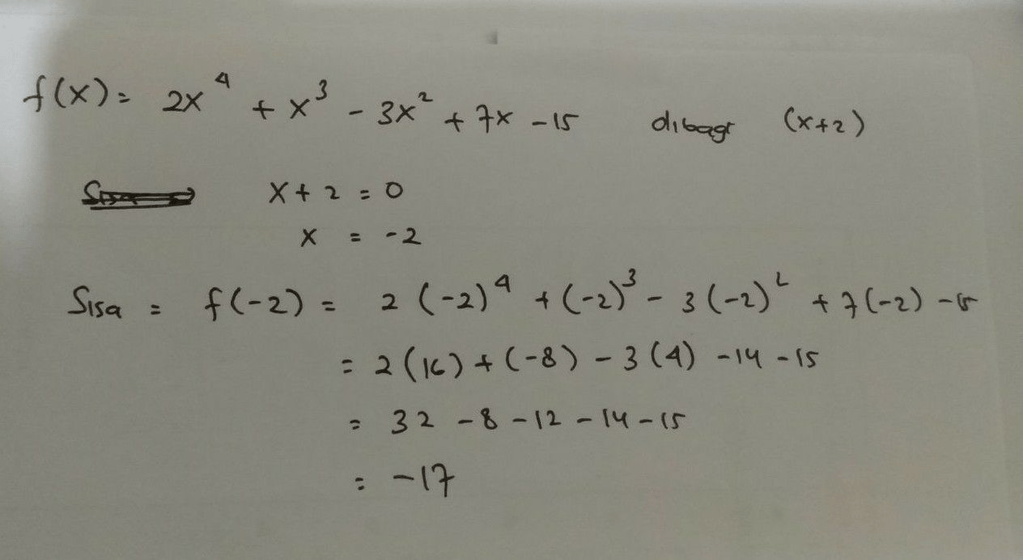 f(x) = 2x⁴ + x³ - 3x² + 7x - 15 dibagi (x+2)
x + 2 = 0
x = -2
Sisa = f(-2) = 2(-2)⁴ + (-2)³ - 3(-2)² + 7(-2) - 15
= 2(16) + (-8) - 3(4) - 14 - 15
= 32 - 8 - 12 - 14 - 15
= -17